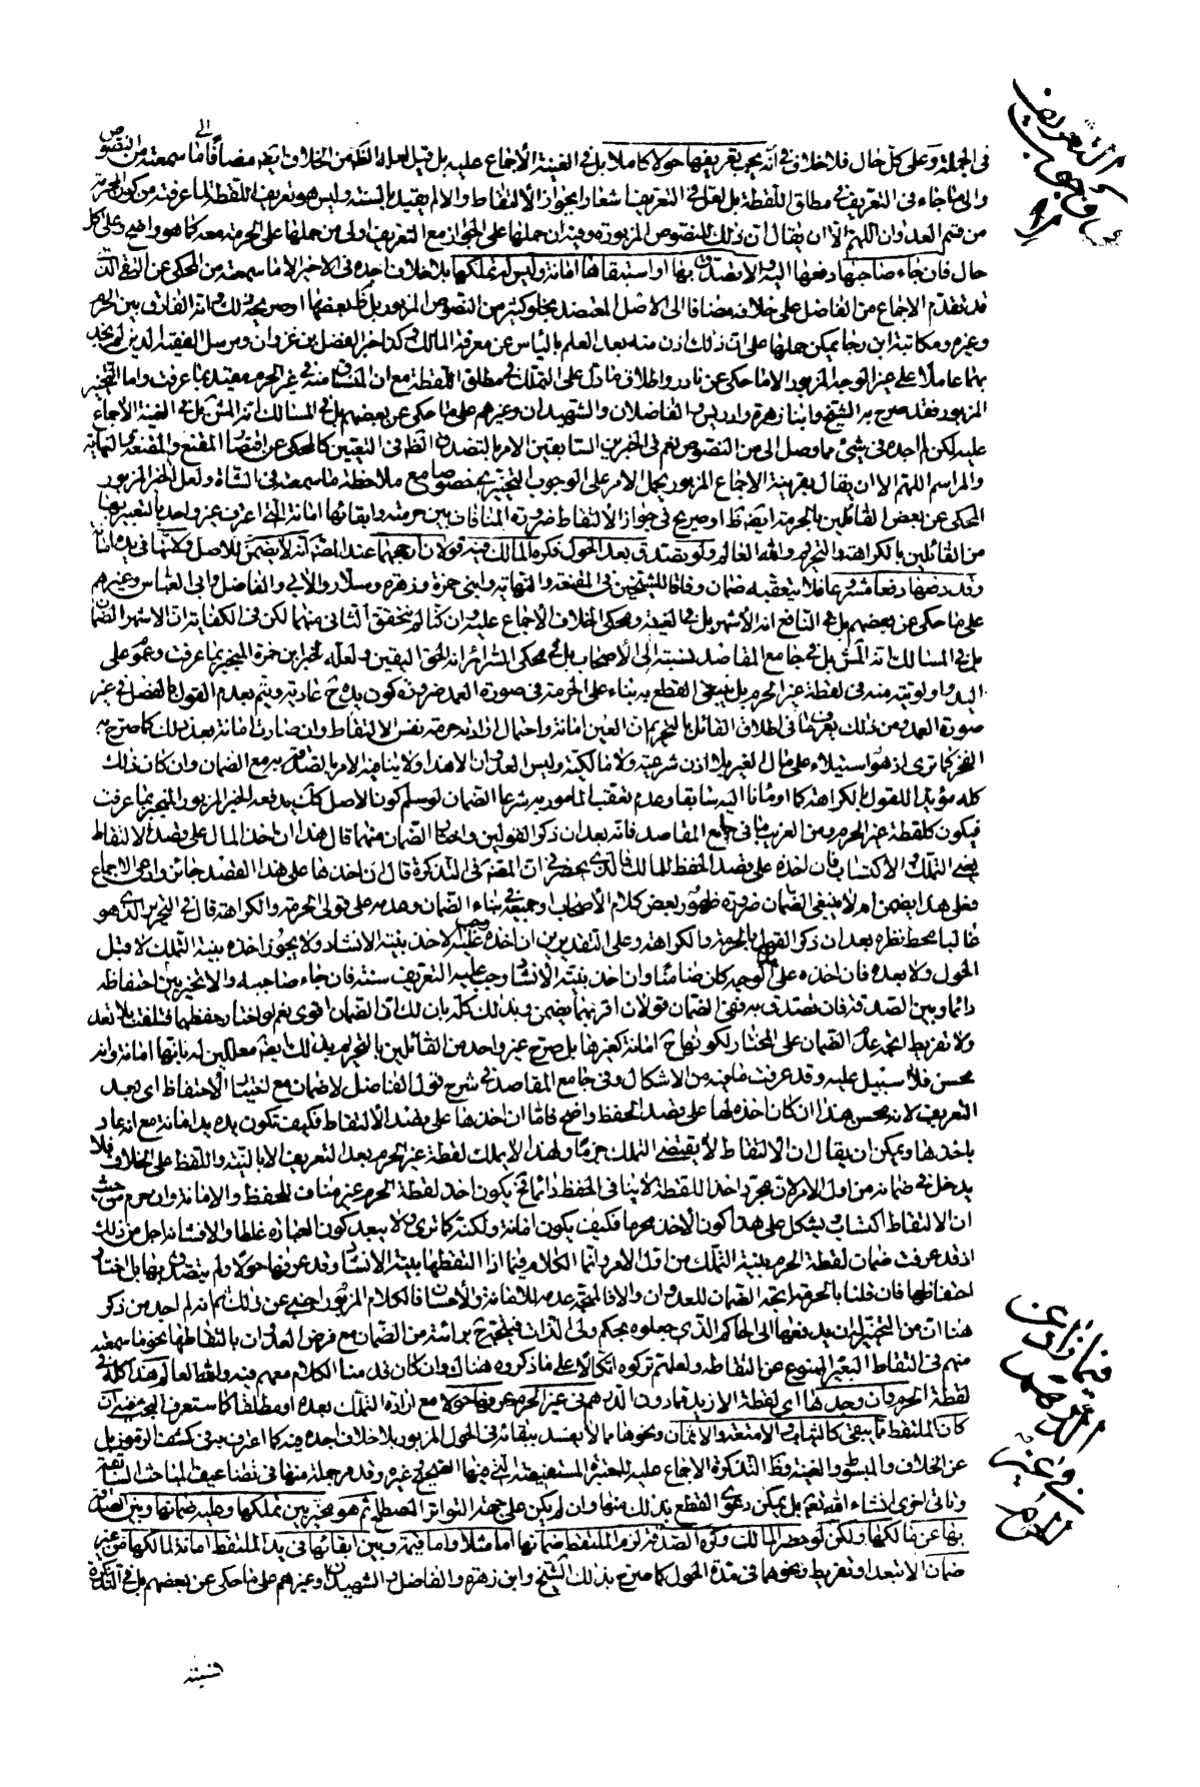 في الجملة وعلى كل حال فلا خلاف في انه يجب تعريفها حولا كاملا بل في الغنية الاجماع عليه بل قيل لعله الظاهر من الخلاف ايضا مضافا الى ما سمعته من النصوص
والى ما جاء في التعريف في مطلق اللقطة بل لعل في التعريف اشعارا بجواز الالتقاط والا لم يقيد بالسنة وليس هو تعريف اللقطة لما عرفت من كون الحرمة
من قسم العدوان اللهم الا ان يقال ان ذلك للنصوص المزبورة وفيه ان حملها على الجواز مع التعريف اولى من حملها على الحرمة معه كما هو واضح وعلى كل
حال فان جاء صاحبها دفعها اليه والا تصدق بها او استبقاها امانة وليس له تملكها بلا خلاف اجده في الاخير الا ما سمعته من المحكي عن التقي الذي
قد تقدم الاجماع من الفاضل على خلافه مضافا الى الاصل المعتضد بخلو كثير من النصوص المزبورة بل ظاهر بعضها او صريحه ذلك وانه الفارق بين الحرم
وغيره ومكاتبة ابن رجا يمكن حملها على ان ذلك اذن منه بعد العلم بالياس عن معرفة المالك وكذا خبر الفضل بن غزوان ومرسل الفقيه الذين لم نجد
بهما عاملا على غير الوجه المزبور الا ما حكى عن نادر واطلاق ما دل على التملك في مطلق اللقطة مع ان المنساق منه في غير الحرم مقيد بما عرفت واما التخيير
المزبور فقد صرح به الشيخ وابنا زهرة وادريس والفاضلان والشهيدان وغيرهم على ما حكى عن بعضهم بل في المسالك انه المشهور بل في الغنية الاجماع
عليه لكن لم اجده في شيء مما وصل الى من النصوص نعم في الخبرين السابقين الامر بالتصدق الظاهر في التعيين كالمحكي عن اقتصار المقنع والمقنعة والنهاية
والمراسم اللهم الا ان يقال بقرينة الاجماع المزبور يحمل الامر على الوجوب التخييري خصوصا مع ملاحظة ما سمعته في الشاة ولعل الخبر المزبور
المحكي عن بعض القائلين بالحرمة ايضا ظاهر او صريح في جواز الالتقاط ضرورة المنافاة بين حرمته وابقائها امانة التي اعترف غير واحد بالتعبير بها
من القائلين بالكراهة والتحريم والله العالم ولو تصدق بعد الحول فكره المالك فيه قولان ارجحهما عند المصنف انه لا يضمن للاصل ولانها في يده امانة
وقد دفعها دفعا مشروعا فلا يتعقبه ضمان وفاقا للشيخين في المقنعة والنهاية وابني حمزة وزهرة وسلار والابي والفاضل وابي العباس وغيرهم
على ما حكى عن بعضهم بل في النافع انه الاشهر بل في الغنية ومحكي الخلاف الاجماع عليه وان كنا لم نتحقق الثاني منهما لكن في الكفاية ان الاشهر الضمان
بل في المسالك انه المشهور بل في جامع المقاصد نسبته الى الاصحاب بل في محكي السرائر انه الحق اليقين ولعله لخبر ابن حمزة المنجبر بما عرفت وعموم على
اليد واولويته منه في لقطة غير الحرم بل ينبغي القطع به بناء على الحرمة في صورة العمد ضرورة كون يده ح عادية ويتم بعدم القول بالفصل في غير
صورة العمد ومن ذلك يعرف ما في اطلاق القائل بالتحريم ان العين امانة واحتمال ارادته حرمة نفس الالتقاط وان صارت امانة بعد ذلك كما صرح به
الفخر كما ترى اذ هو استيلاء على مال الغير بلا اذن شرعية ولا مالكية وليس العدوان الا هذا ولا ينافيه الامر بالصدقة به مع الضمان وان كان ذلك
كله مؤيدا للقول بالكراهة كما اومأنا اليه سابقا وعدم تعقب المامور به شرعا الضمان لو سلم كون الاصل كك يدفعه الخبر المزبور المنجبر بما عرفت
فيكون كلقطة غير الحرم ومن الغريب ما في جامع المقاصد فانه بعد ان ذكر القولين واختار الضمان منهما قال هذا ان اخذ المال على قصد الالتقاط
يعني التملك والاكتساب فان اخذه على قصد الحفظ للمالك فالذي يحضرني ان المصنف في التذكرة قال ان اخذها على هذا القصد جائز وادعى الاجماع
فعلى هذا يضمن ام لا ينبغي الضمان ضرورة ظهور بعض كلام الاصحاب او جميعه في بناء الضمان وعدمه على قولي الحرمة والكراهة قال في التحرير الذي هو
غالبا محط نظره بعد ان ذكر القول بالحرمة والكراهة وعلى التقديرين ان اخذه وجب عليه الاخذ بنية الانشاد ولا يجوز اخذه بنية التملك لا قبل
الحول ولا بعده فان اخذه على هذا الوجه كان ضامنا وان اخذ بنية الانشاد وجب عليه التعريف سنة فان جاء صاحبه والا تخير بين احتفاظه
دائما وبين الصدقة فان تصدق به ففي الضمان قولان اقربهما يضمن وبذلك كله بان لك ان الضمان اقوى نعم لو اختار حفظهما فتلفت بلا تعد
ولا تفريط اتجه عدم الضمان على المختار لكونها ح امانة كغيرها بل صرح غير واحد من القائلين بالتحريم بذلك ايضا معللين له بانها امانة وانه
محسن فلا سبيل عليه وقد عرفت ما فيه من الاشكال وفي جامع المقاصد في شرح قول الفاضل لا ضمان مع نية الاحتفاظ اي بعد
التعريف لانه محسن هذا ان كان اخذه لها على قصد الحفظ واضح فاما ان اخذها على قصد الالتقاط فكيف تكون يده يد امانة مع انه عاد
باخذها ويمكن ان يقال ان الالتقاط لا يقتضي التملك جزما ولهذا لا يملك لقطة غير الحرم بعد التعريف الا بالنية واللفظ على الخلاف فلا
يدخل في ضمانه من اول الامر لان مجرد اخذ اللقطة لا ينافي الحفظ دائما فح يكون اخذ لقطة الحرم غير مناف للحفظ والامانة وان حرم من حيث
ان الالتقاط اكتساب ويشكل على هذا كون الاخذ محرما فكيف يكون امانة ولكنه كما ترى ولا يبعد كون العبارة غلطا والا فشانه اجل من ذلك
اذ قد عرفت ضمان لقطة الحرم بنية التملك من اول الامر وانما الكلام فيما اذا التقطها بنية الانشاد وقد عرفها حولا ولم يتصدق بها بل اختار
احتفاظها فان قلنا بالحرمة اتجه الضمان للعدوان والا فالمتجه عدمه للامانة والاحسان فالكلام المزبور اجنبي عن ذلك ثم انه لم اجد من ذكر
هنا ان من التخيير ان يدفعها الى الحاكم الذي جعلوه بحكم ولى الذات فيتجه ح برائته من الضمان مع فرض العدوان بالتقاطها نحو ما سمعته
منهم في التقاط البعير الممنوع عن التقاطه ولعلهم تركوه اتكالا على ما ذكروه هناك وان كان قد منا الكلام معهم فيه والله العالم هذا كله في
لقطة الحرم وان وجدها اي لقطة الازيد مما دون الدرهم في غير الحرم عرفها حولا مع ارادة التملك بعده او مطلقا كما ستعرف البحث فيه ان
كان الملتقط مما يبقى كالثياب والامتعة والاثمان ونحوها مما لا يفسد ببقائه في الحول المزبور بلا خلاف اجده فيه كما اعترف به في كشف الرموز بل
عن الخلاف والمبسوط والغنية وظاهر التذكرة الاجماع عليه للمعتبرة المستفيضة التي فيها الصحيح وغيره وقد مر جملة منها في تضاعيف المباحث السابقة
وتاتي اخرى انشاء الله تعالى بل يمكن دعوى القطع بذلك منها وان لم يكن على جهة التواتر المصطلح ثم هو مخير بين تملكها وعليه ضمانها وبين الصدقة
بها عن مالكها ولكن لو حضر المالك وكره الصدقة لزم الملتقط ضمانها اما مثلا واما قيمة وبين ابقائها في يد الملتقط امانة لمالكها من غير
ضمان الا بتعد او تفريط ونحوهما في مدة الحول كما صرح بذلك الشيخ وابن زهرة والفاضل والشهيدان وغيرهم على ما حكى عن بعضهم بل في التذكرة